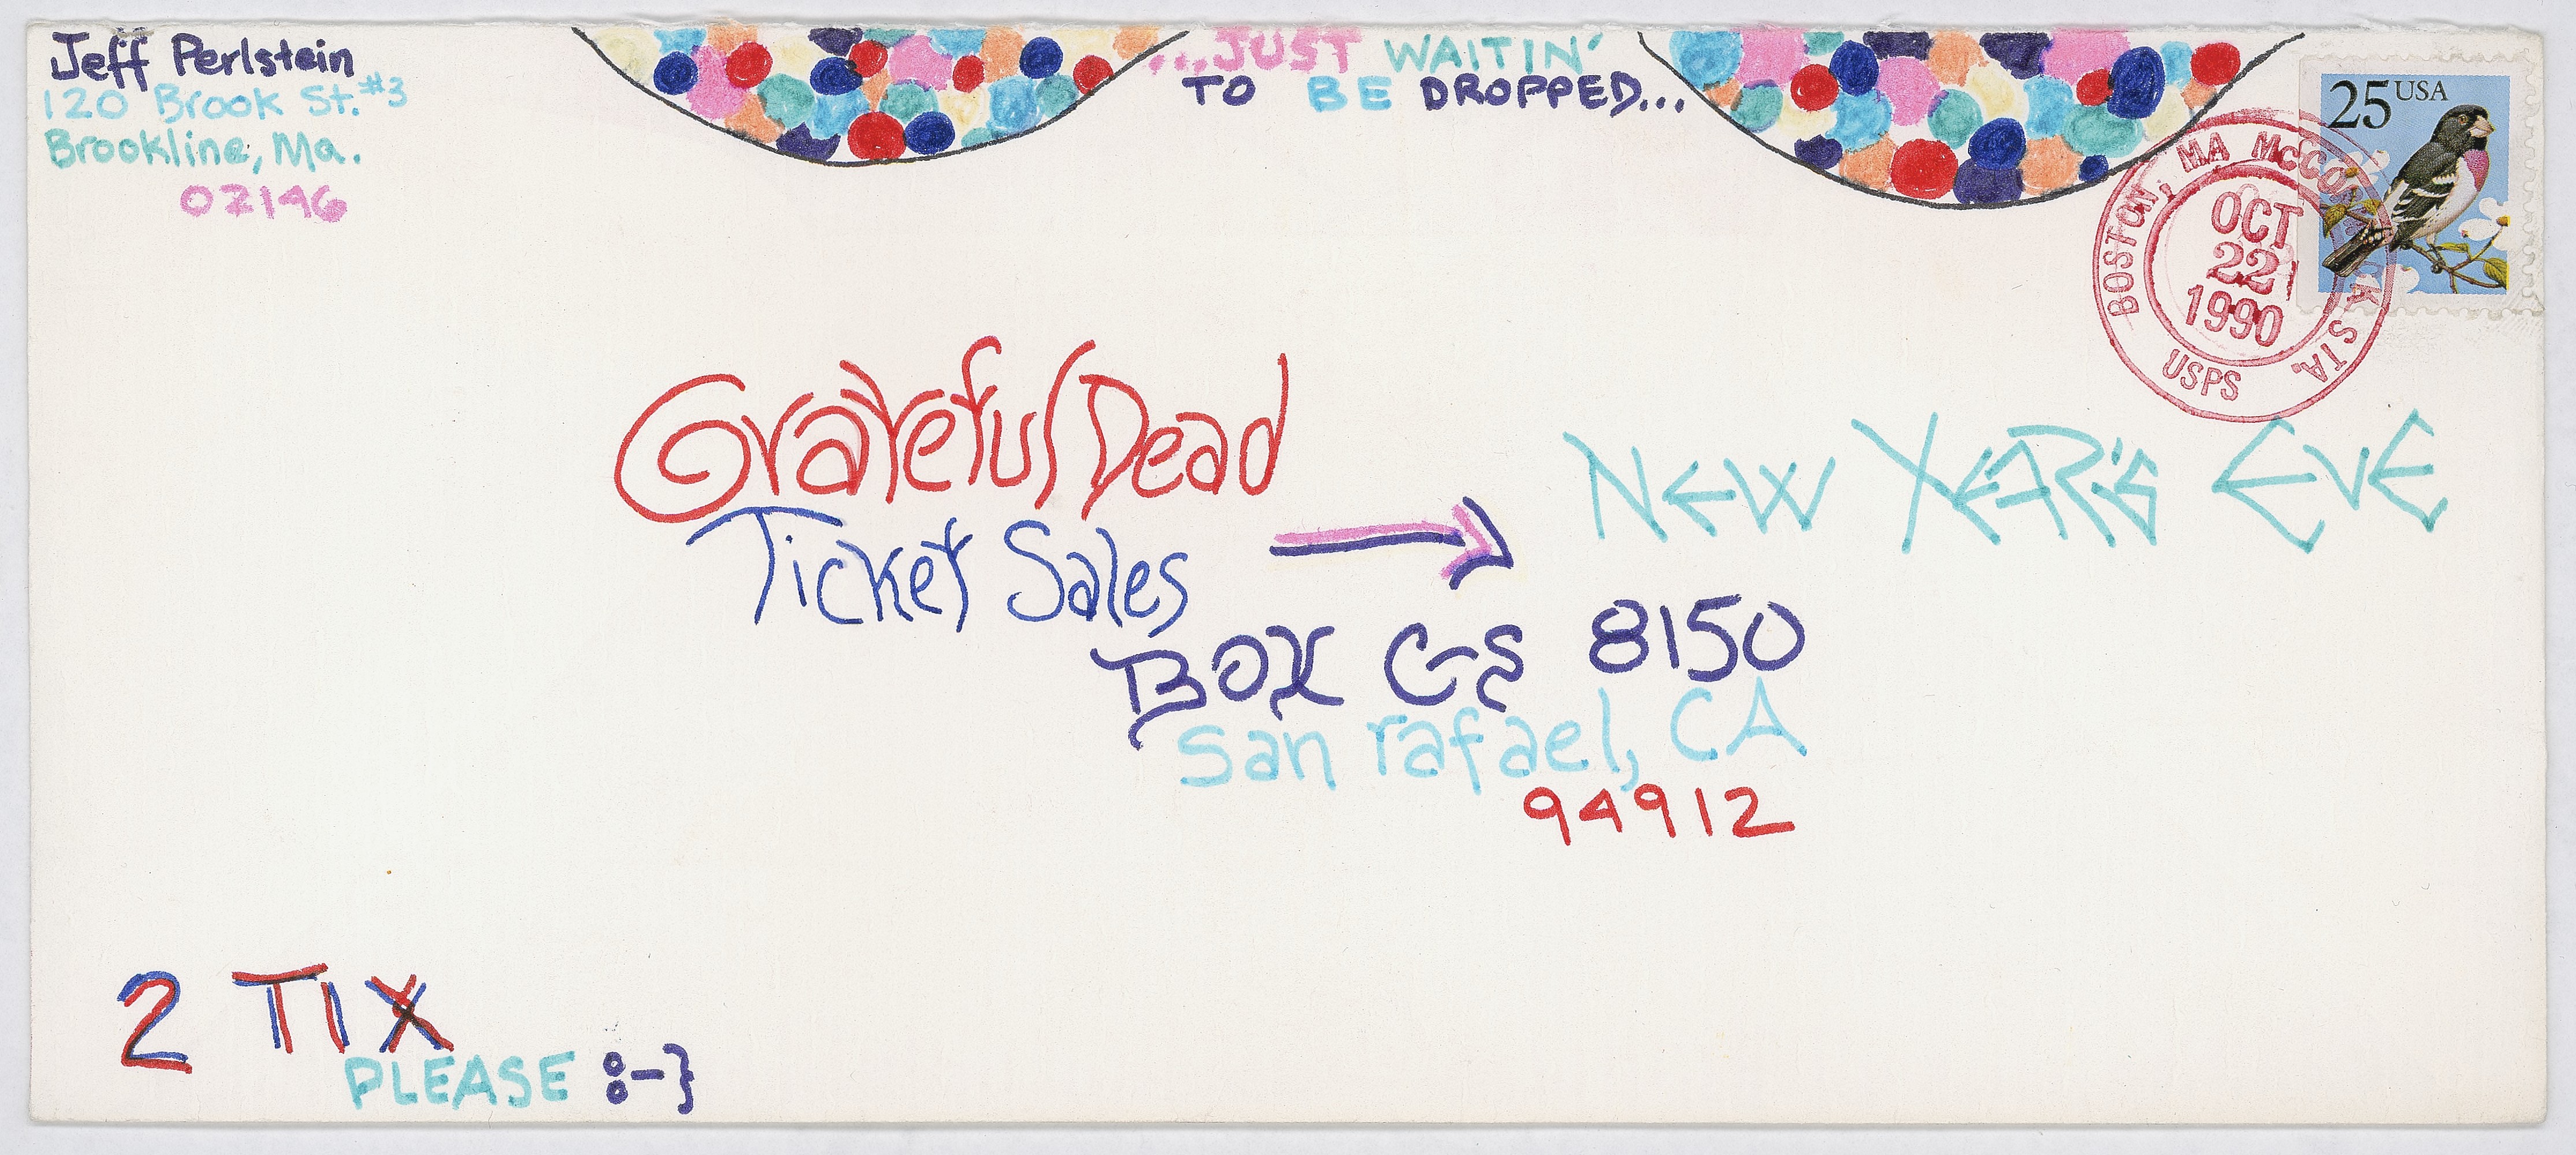 Jeff Perlstein
120 Brook St. #3
Brookline, Ma.
02146
...JUST WAITIN'
TO BE DROPPED...
25 USA
BOSTON, MA McCORMACK STA.
OCT
22
1990
USPS
Grateful Dead
Ticket Sales
NEW YEAR'S EVE
BOX CS 8150
San rafael, CA
94912
2 TIX
PLEASE :-}